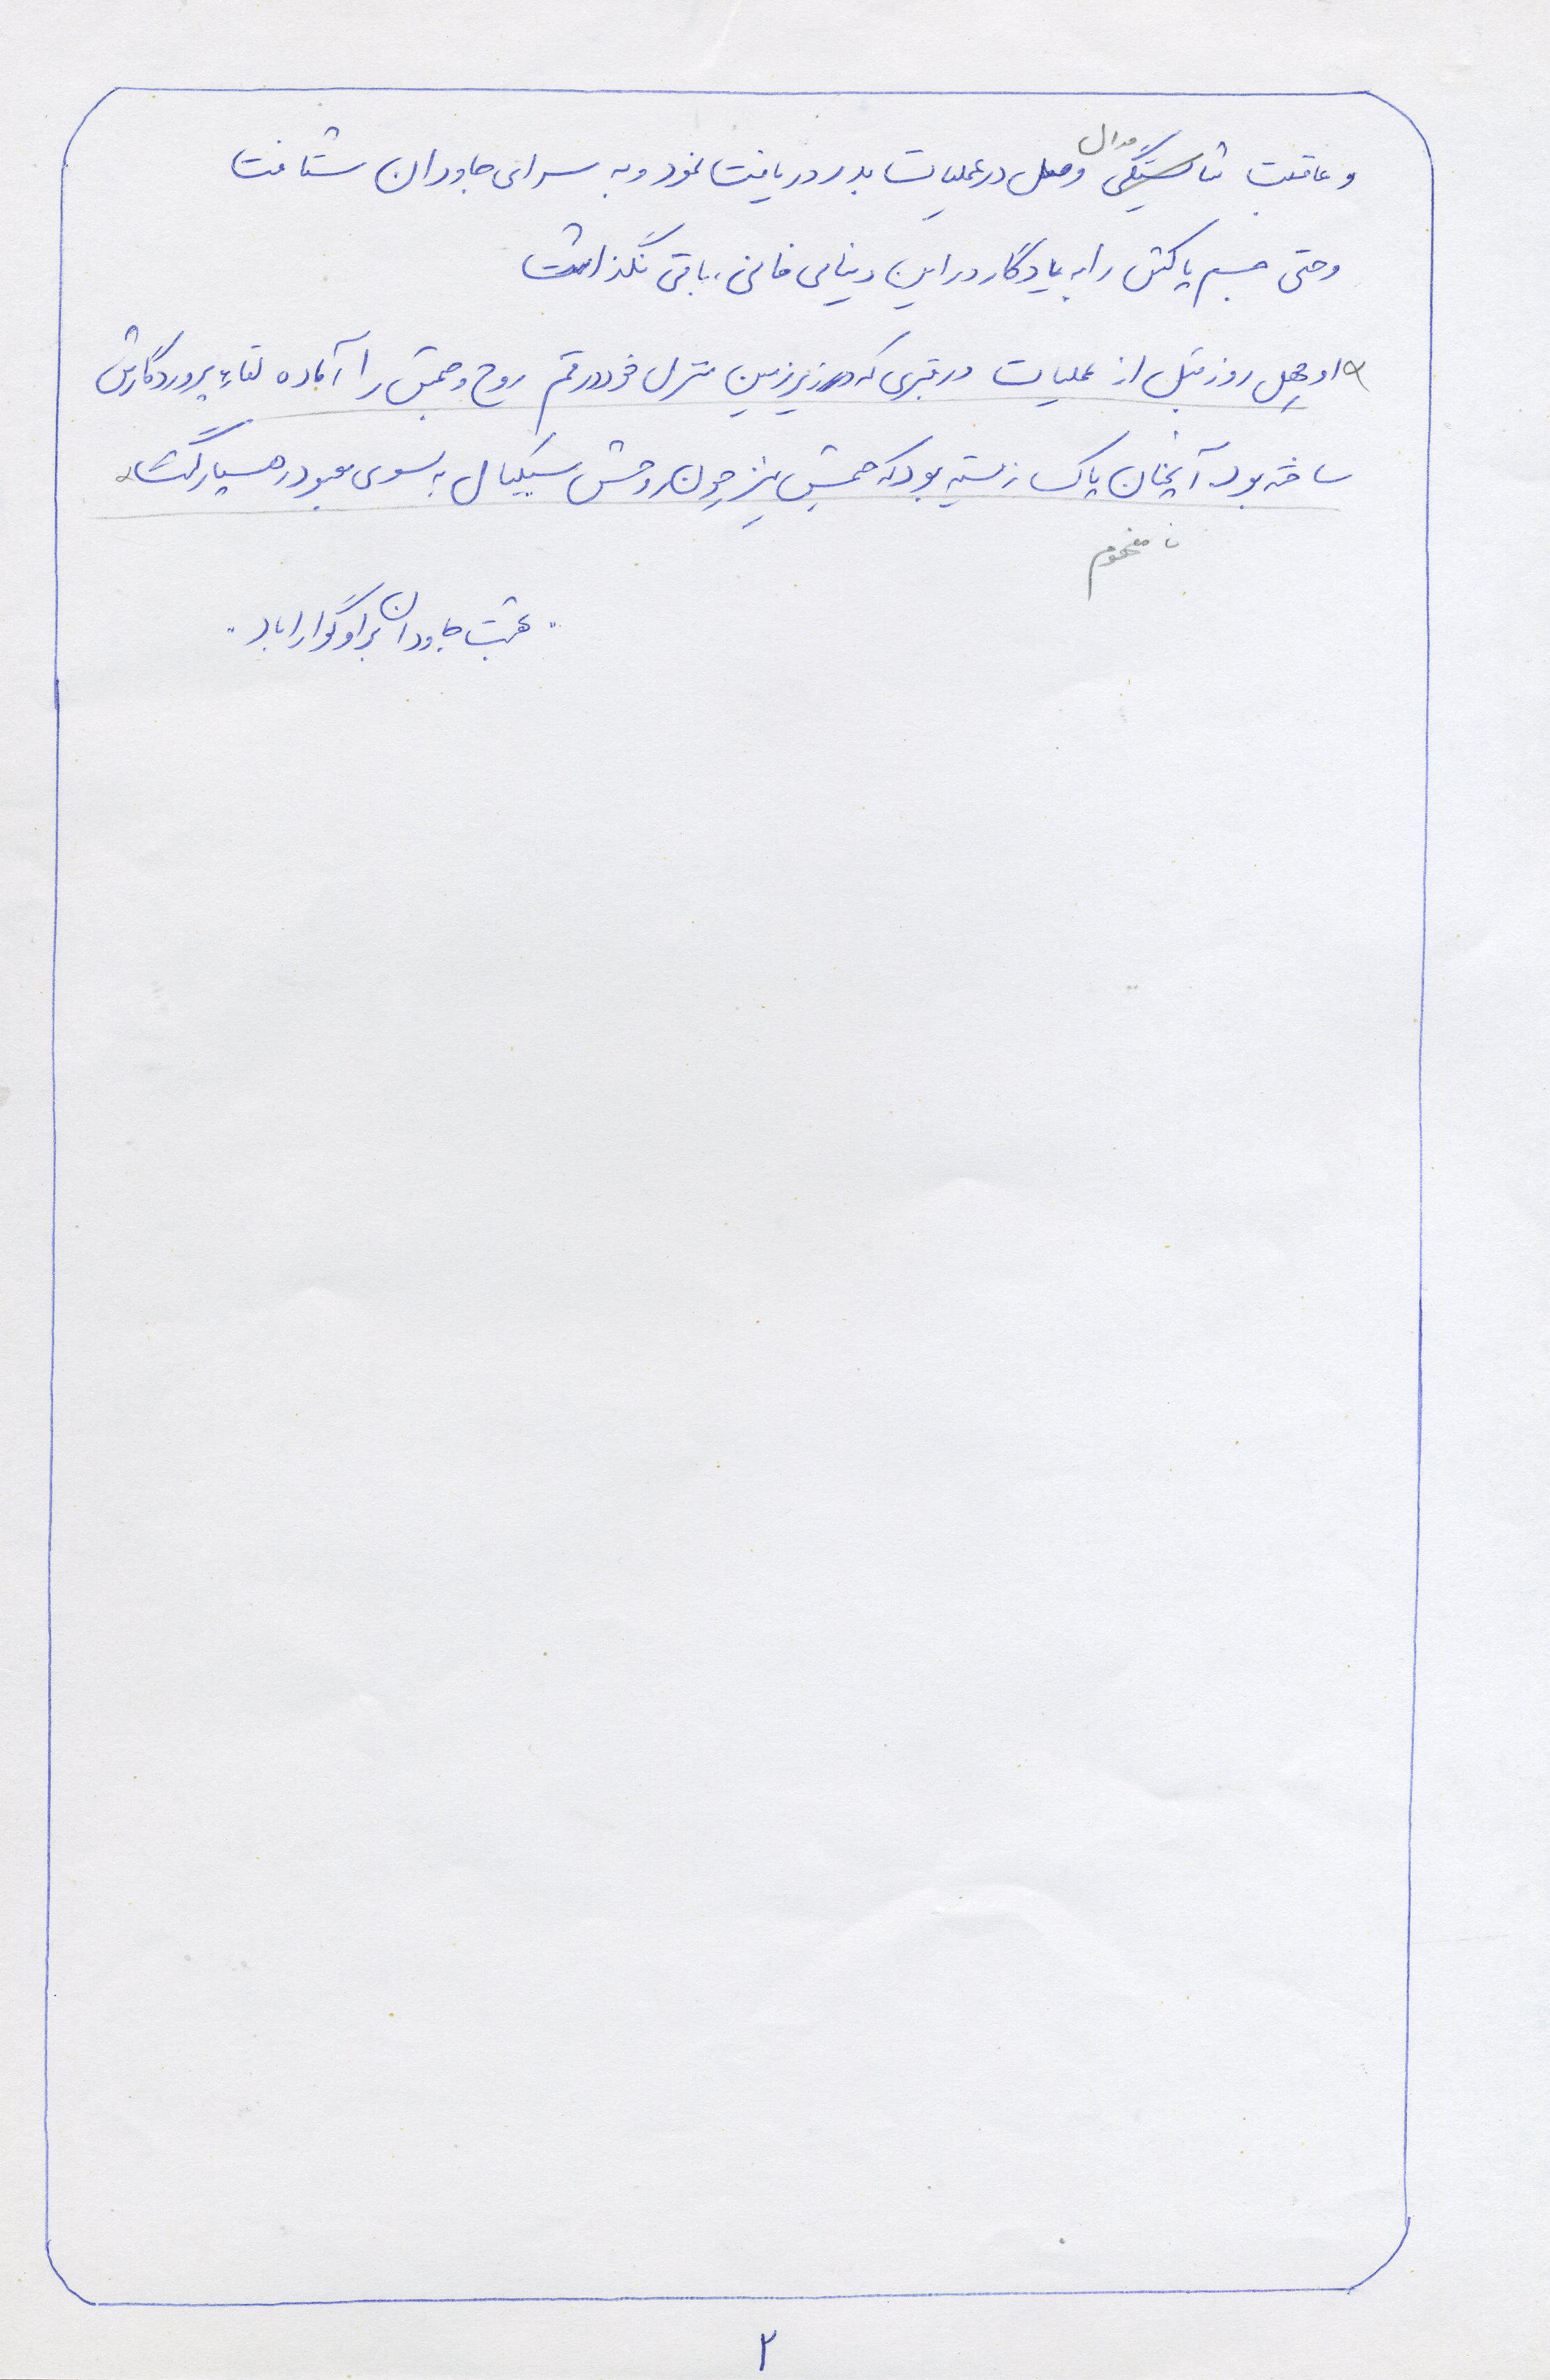 مدال
و عاقبت شایستگی وصل در عملیات بدر دریافت نمود و به سرای جاودان شتافت
وحتی جسم پاکش را به یادگار در این دنیای فانی، باقی نگذاشت
او چهل روز قبل از عملیات در قبری که در زیرزمین منزل خود در قم روح و جسمش را آماده لقاء پروردگارش
ساخته بود. آنچنان پاک زیسته بود که جسمش نیز چون روحش سبکبال به سوی معبود رهسپار گشت
نا مفهوم
" شهادت جاودان بر او گوارا باد "
۲